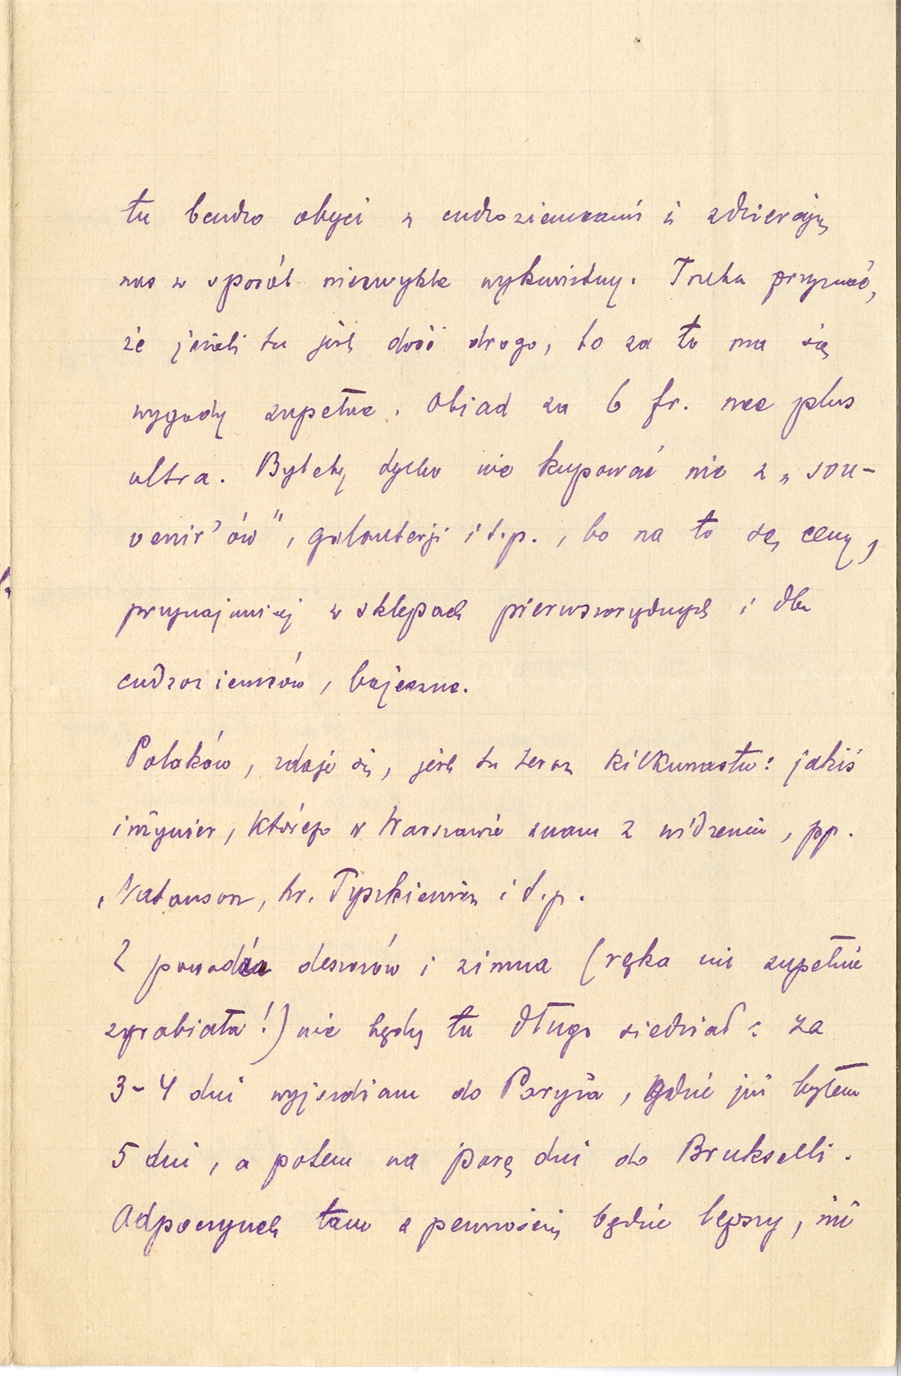 tu bardzo obyci z cudzoziemcami i zdzierają
nas w sposób niezwykle wykwintny. Trzeba przyznać,
że jeżeli tu jest dość drogo, to za to ma się
wygody zupełne. Obiad za 6 fr. nec plus
ultra. Byleby tylko nie kupować nic z „sou-
venir'ów", galanterji i t.p., bo na to są ceny,
przynajmniej w sklepach pierwszorzędnych i dla
cudzoziemców, bajeczne.
Polaków, zdaje się, jest tu teraz kilkunastu: jakiś
inżynier, którego w Warszawie znam z widzenia, pp.
Natanson, hr. Tyszkiewicz i t.p.
Z powodu deszczów i zimna (ręka mi zupełnie
zgrabiała!) nie będę tu długo siedział: za
3-4 dni wyjeżdżam do Paryża, gdzie już byłem
5 dni, a potem na parę dni do Brukselli.
Odpoczynek tam z pewnością będzie lepszy, niż